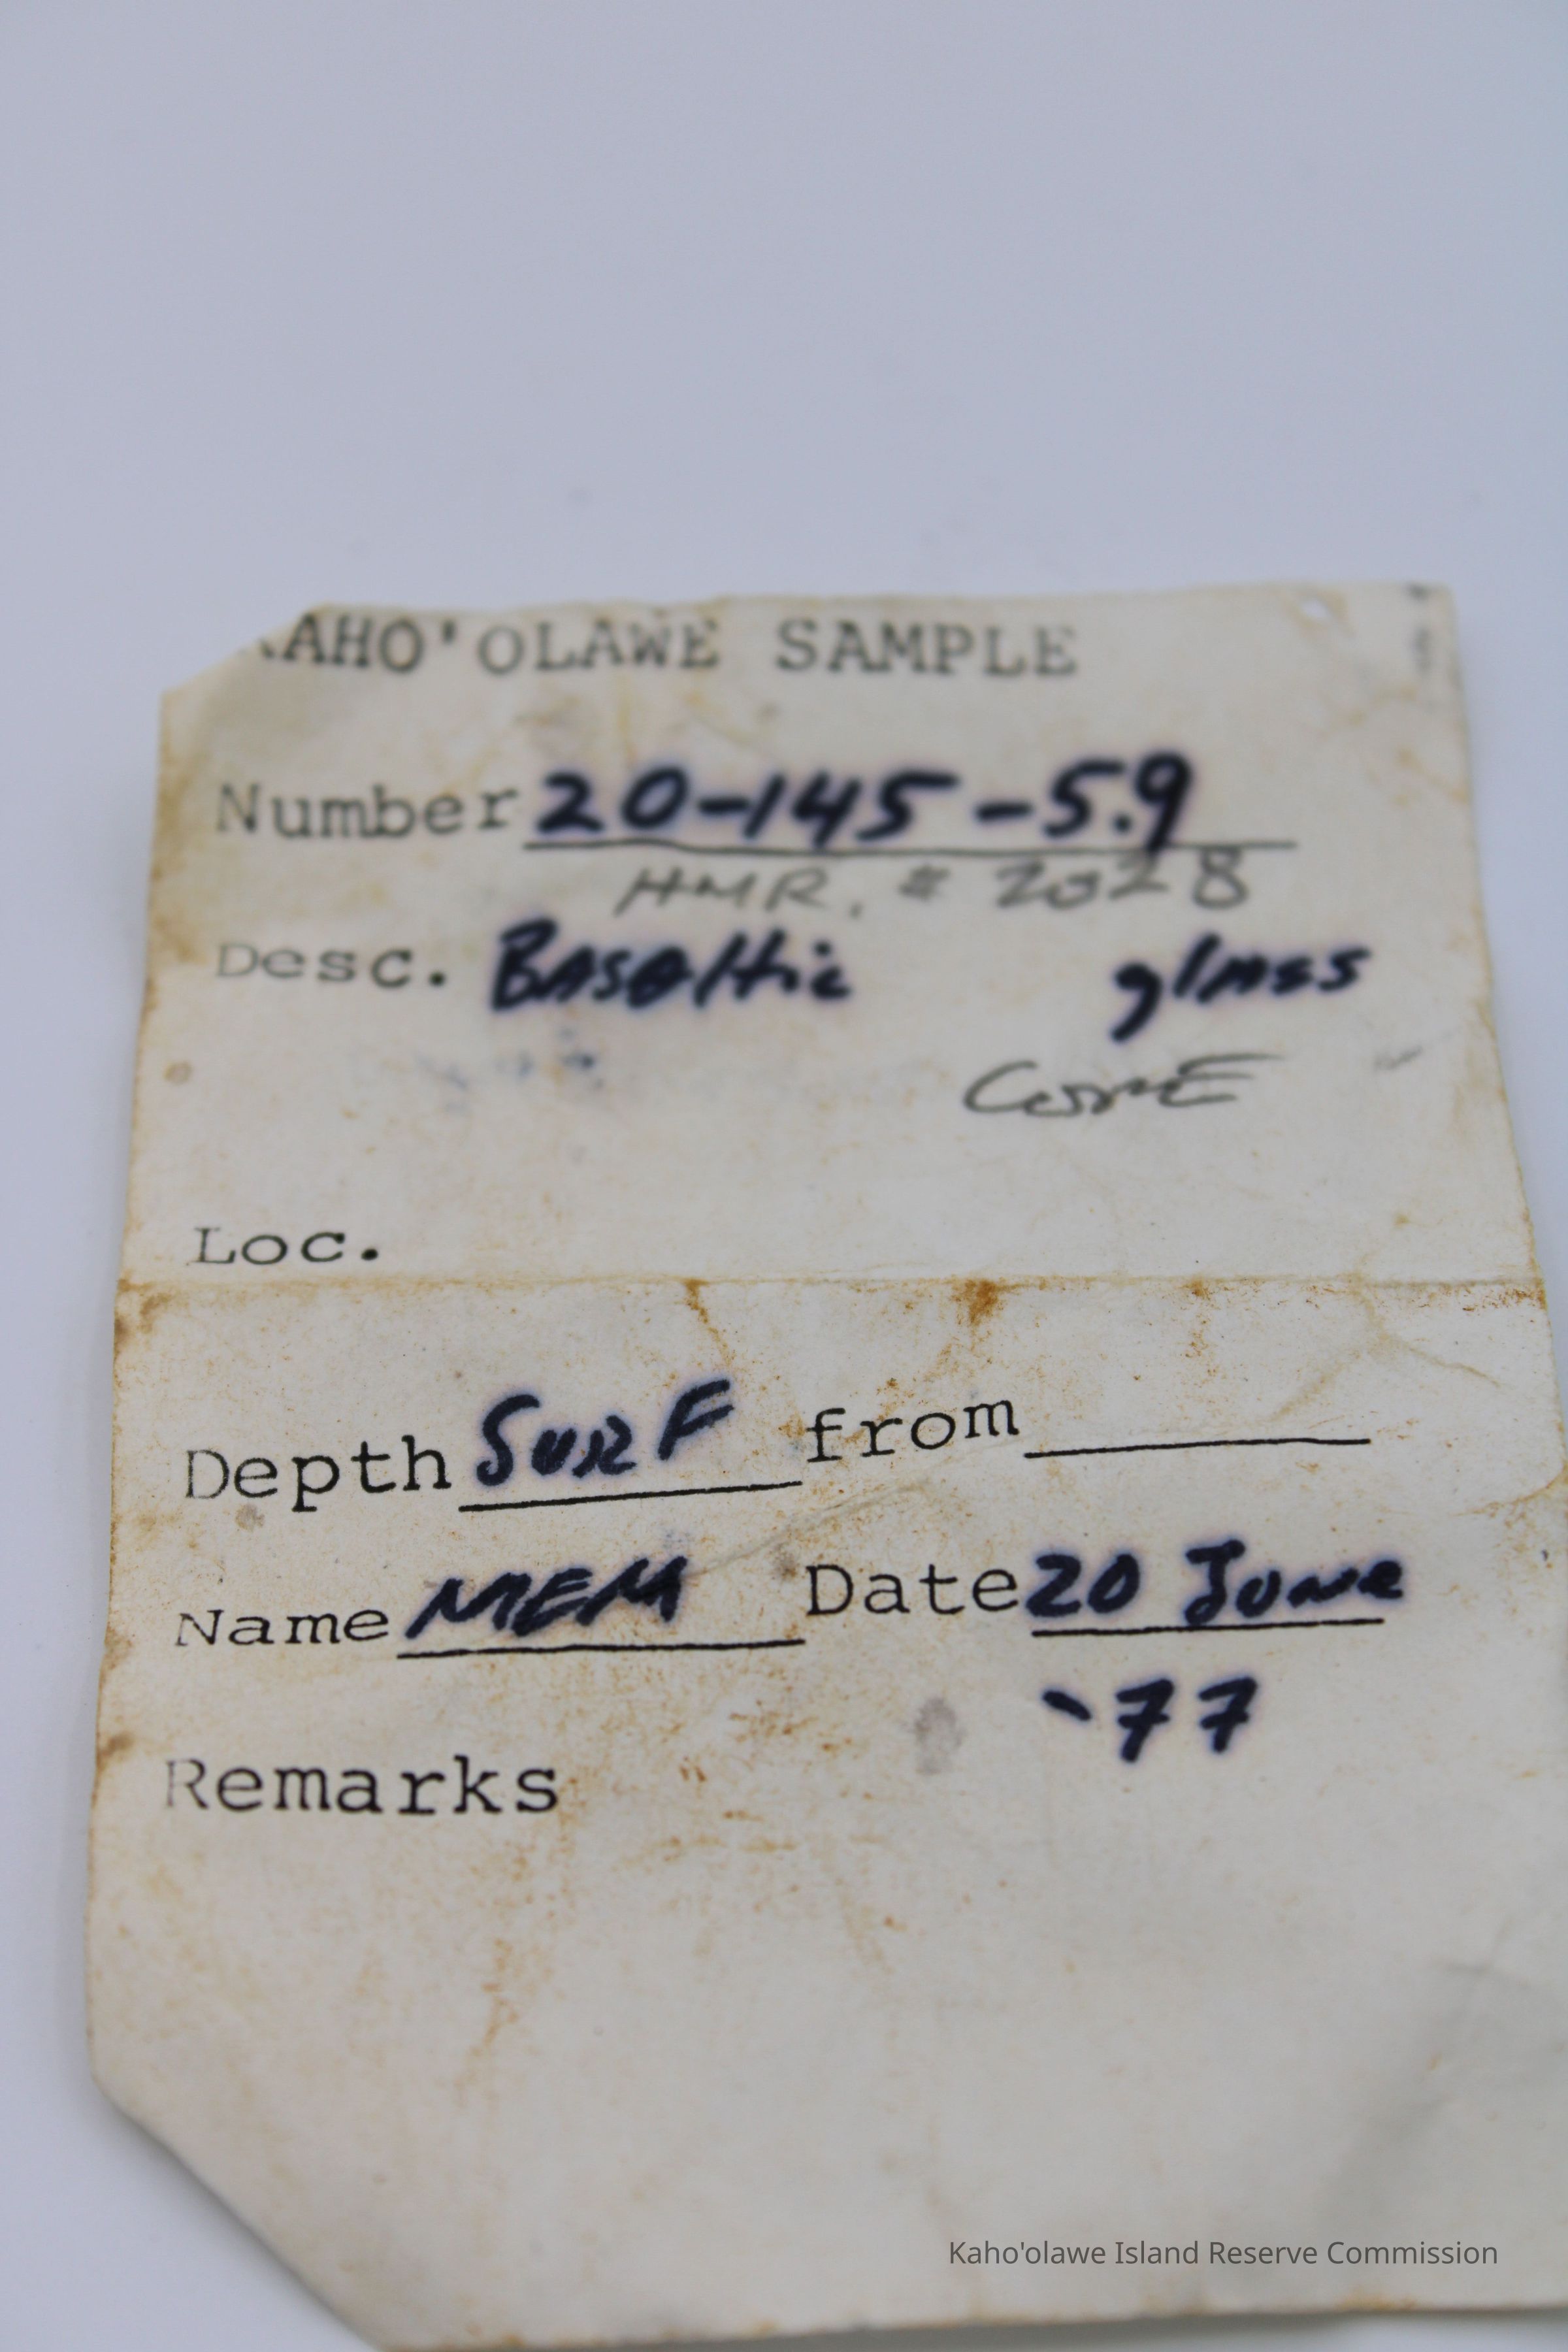 KAHO'OLAWE SAMPLE
Number 20-145-5.9
HMR. # 2028
Desc. Basaltic glass
CorE
Loc.
Depth SURF from
Name MEM Date 20 June
-77
Remarks
Kaho'olawe Island Reserve Commission